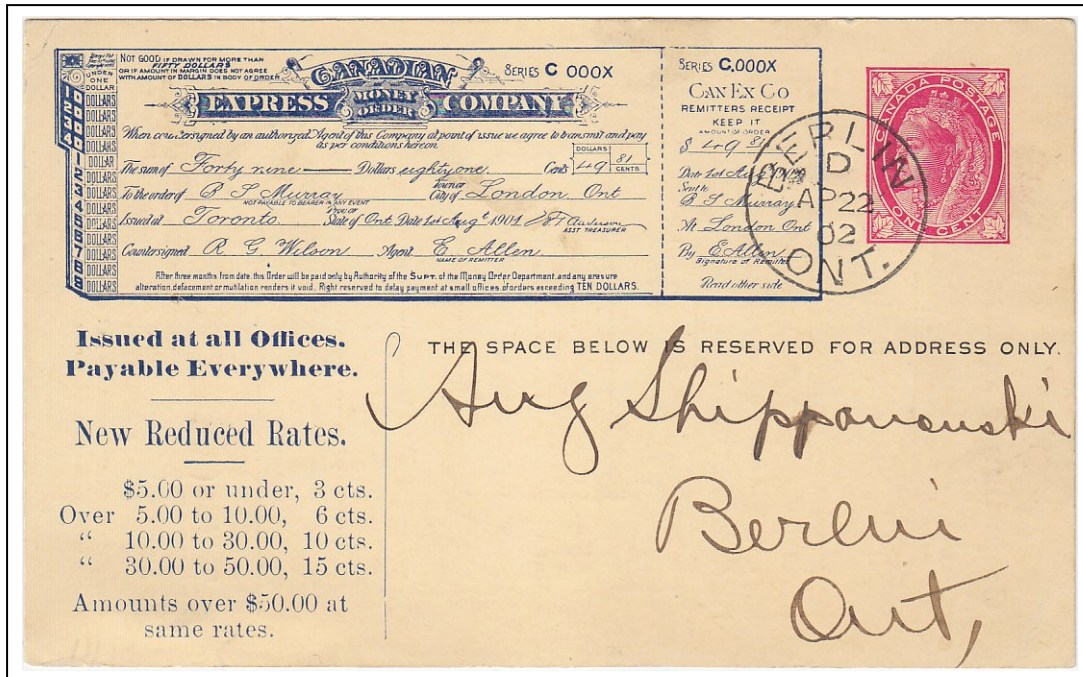 NOT GOOD IF DRAWN FOR MORE THAN
FIFTY DOLLARS
OR IF AMOUNT IN MARGIN DOES NOT AGREE
WITH AMOUNT OF DOLLARS IN BODY OF ORDER
CANADIAN
SERIES C 000X
EXPRESS MONEY ORDER COMPANY
When countersigned by an authorized Agent of this Company at point of issue we agree to transmit and pay
as per conditions hereon
The sum of Forty nine Dollars eighty one Cents
DOLLARS 49 81 CENTS
To the order of B S Murray Town or City of London Ont
NOT PAYABLE TO BEARER IN ANY EVENT
Issued at Toronto State of Ont Date 1st Augt 1901
ASST TREASURER
Countersigned R G Wilson Agent E Allen
NAME OF REMITTER
After three months from date, this Order will be paid only by Authority of the SUPT. of the Money Order Department, and any erasure
alteration, defacement or mutilation renders it void. Right reserved to delay payment at small offices of orders exceeding TEN DOLLARS.
UNDER
ONE
DOLLAR
DOLLARS
SERIES C,000X
CAN EX CO
REMITTERS RECEIPT
KEEP IT
AMOUNT OF ORDER
$ 49 81
Date 1st Aug
Sent to
B S Murray
At London Ont
By E Allen
Signature of Remitter
Read other side
CANADA POSTAGE
ONE CENT
BERLIN
D
AP 22
02
ONT.
Issued at all Offices.
Payable Everywhere.
New Reduced Rates.
$5.00 or under, 3 cts.
Over 5.00 to 10.00, 6 cts.
“ 10.00 to 30.00, 10 cts.
“ 30.00 to 50.00, 15 cts.
Amounts over $50.00 at
same rates.
THE SPACE BELOW IS RESERVED FOR ADDRESS ONLY.
Aug Shippanouski
Berlin
Ont,